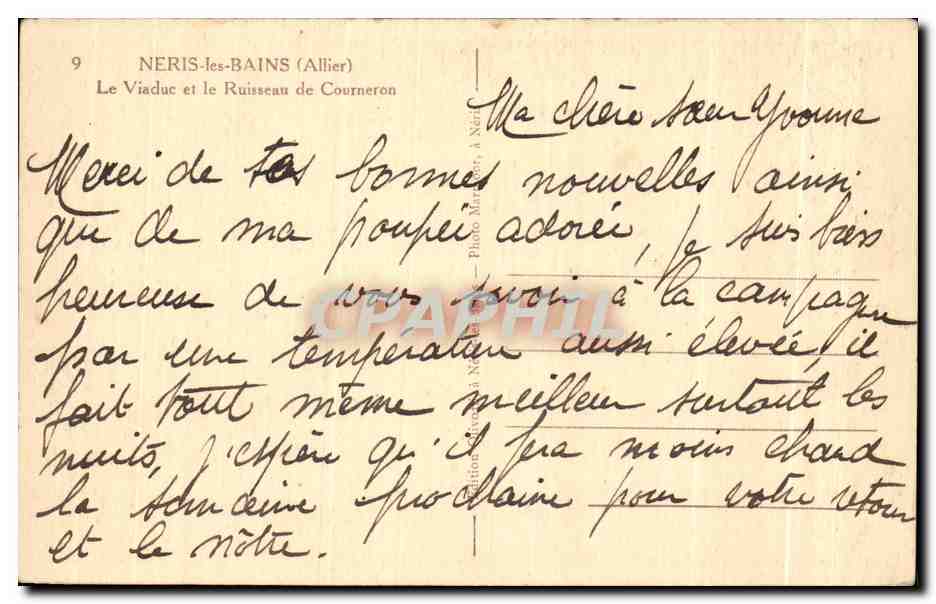 9 NERIS-les-BAINS (Allier)
Le Viaduc et le Ruisseau de Courneron
Ma chère sœur Yvonne
Merci de tes bonnes nouvelles ainsi
que de ma poupée adorée, je suis bien
heureuse de vous savoir à la campagne
par une température aussi élevée, il
fait tout même meilleur surtout les
nuits, j'espère qu'il fera moins chaud
la semaine prochaine pour votre retour
et le nôtre.
Photo à Néris
CPAPHIL